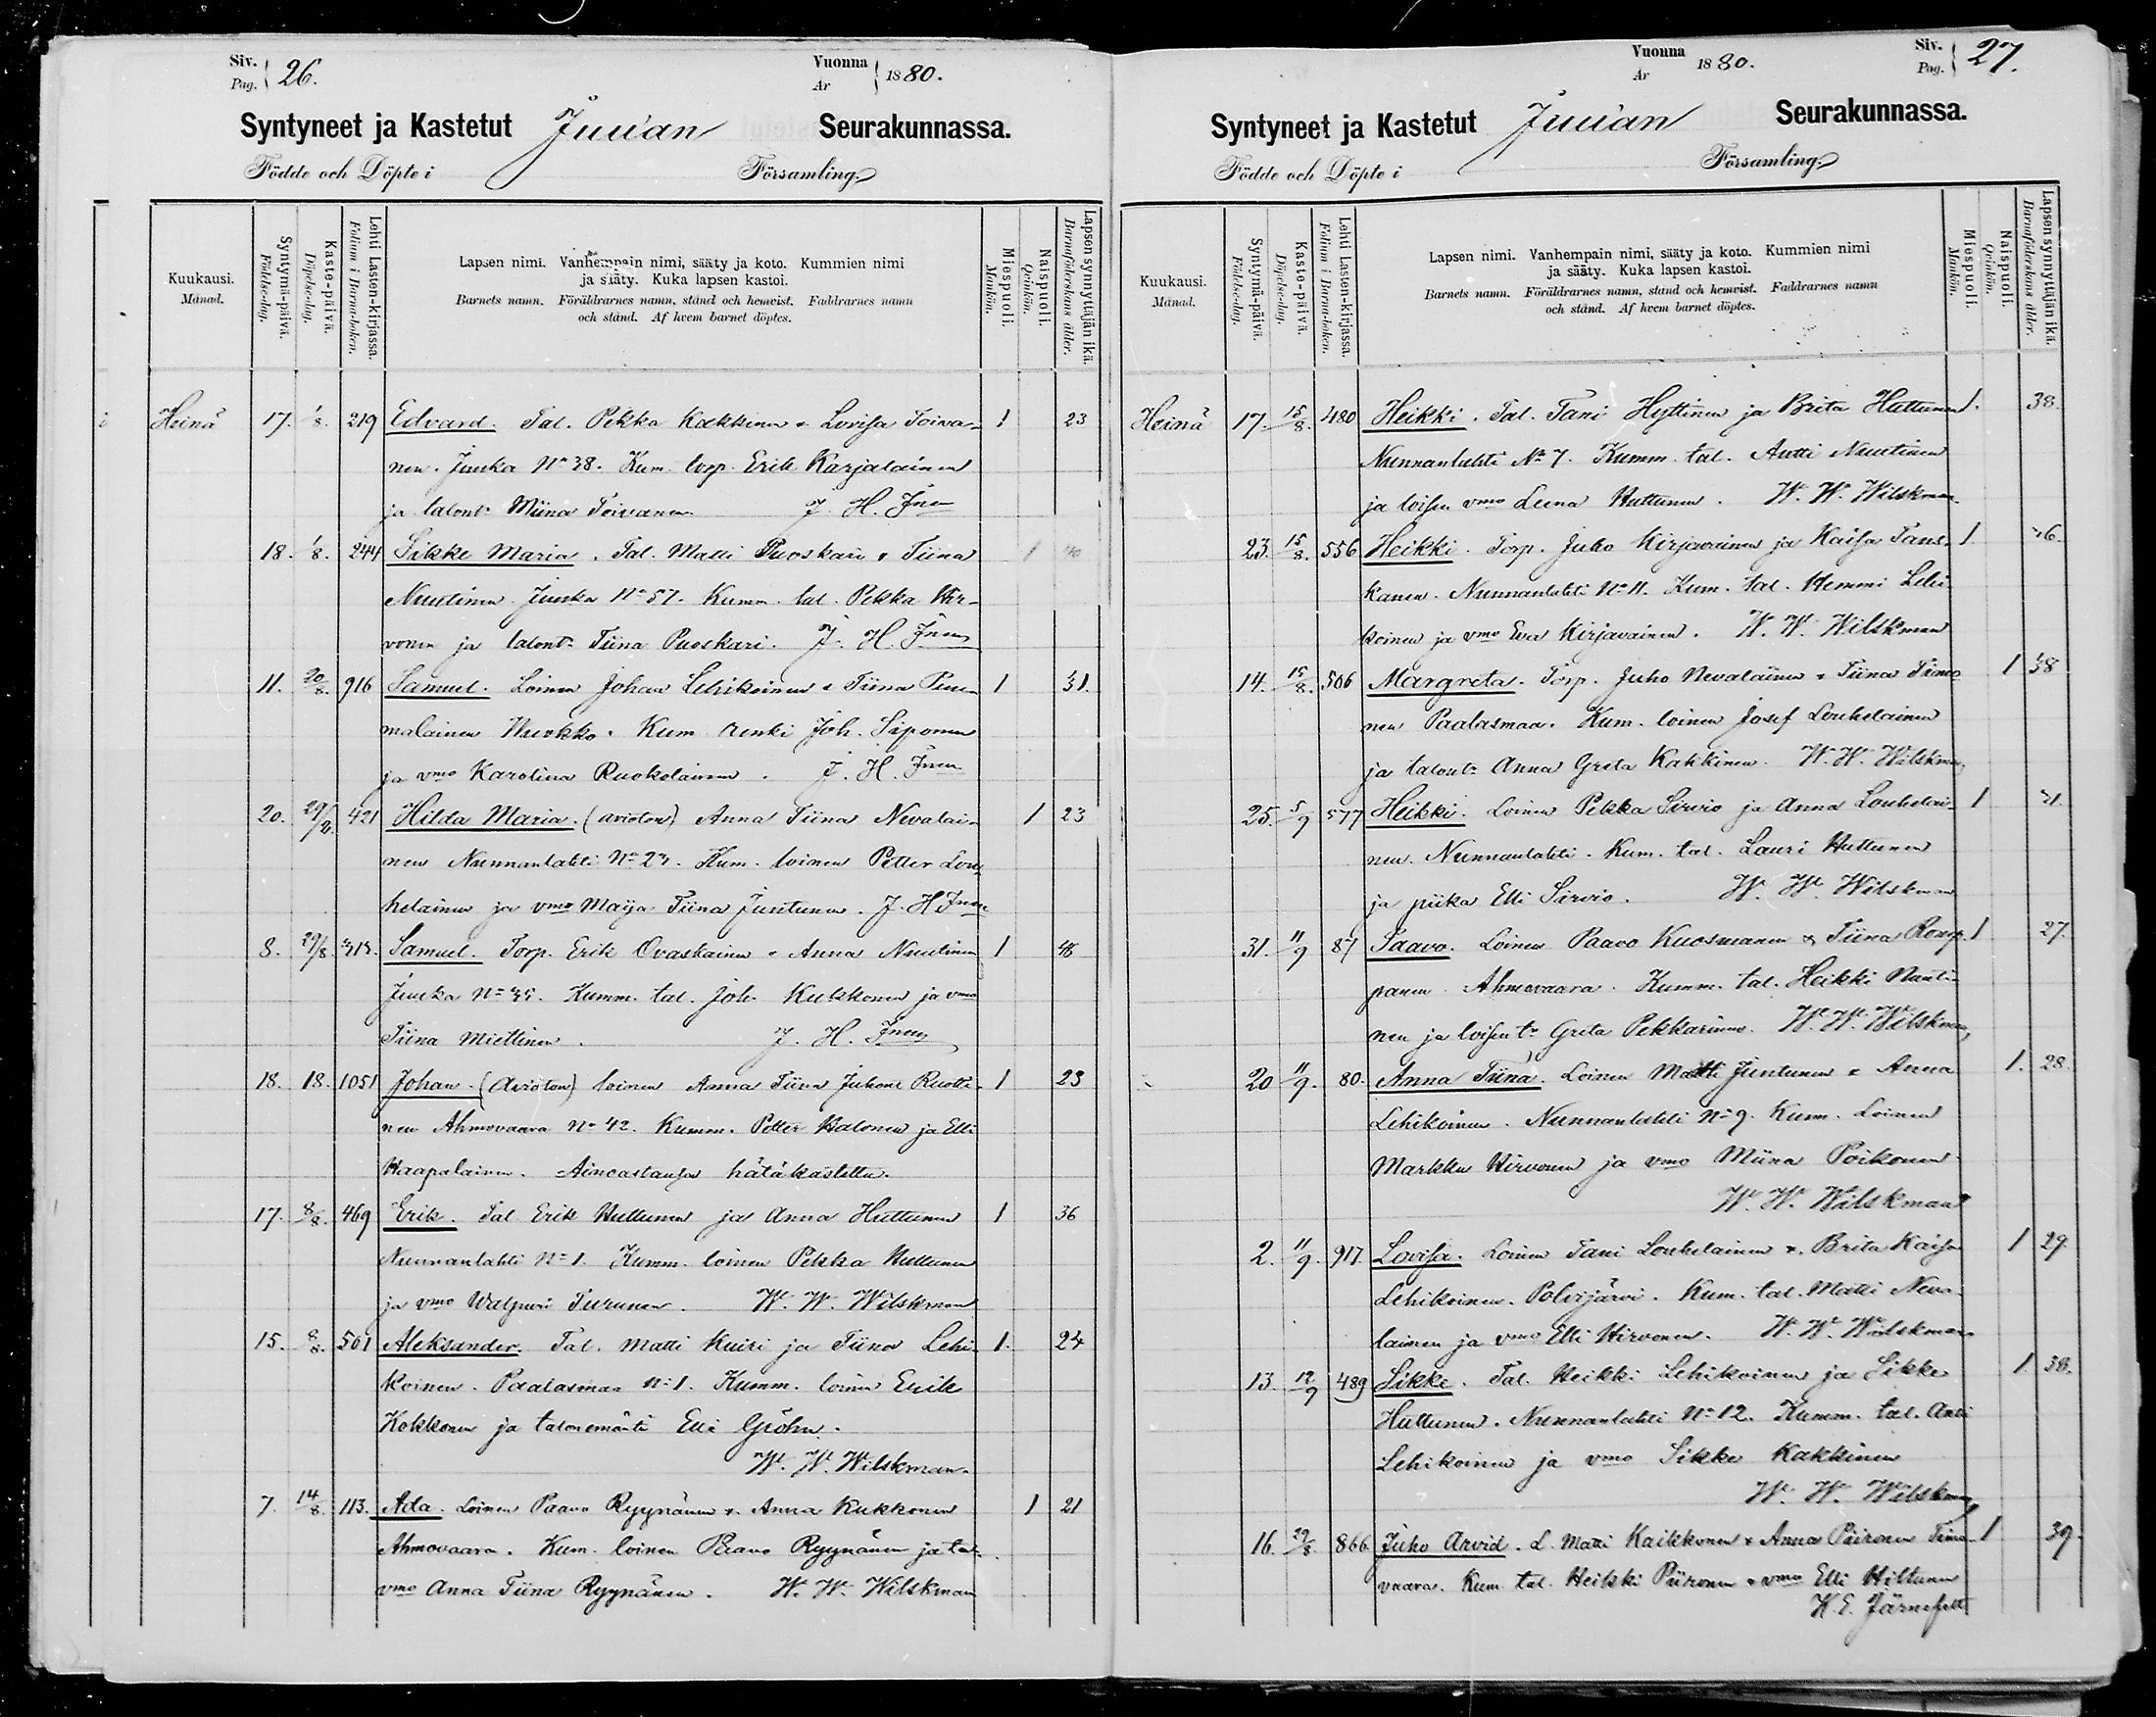 Siv. Pag. 26.
Vuonna År 1880.
Syntyneet ja Kastetut Juuan Seurakunnassa.
Födde och Döpte i Församling.
Kuukausi. Månad.
Syntymä-päivä. Födelse-dag.
Kaste-päivä. Döpelse-dag.
Lehti Lasten-kirjassa. Folium i Barna-boken.
Lapsen nimi. Vanhempain nimi, sääty ja koto. Kummien nimi
ja sääty. Kuka lapsen kastoi.
Barnets namn. Föräldrarnes namn, stånd och hemvist. Faddrarnes namn
och stånd. Af hvem barnet döptes.
Miespuoli. Mankön.
Naispuoli. Qvinkön.
Lapsen synnyttäjän ikä. Barnaföderskans ålder.
Heinä 17. 1/8. 219 Edvard. Tal. Pekka Kakkinen & Lovisa Toiva- 1 23
nen. Juuka No 38. Kum. torp. Erik Karjalainen
ja talont. Miina Toivanen. J. H. Jnen
18. 1/8. 244 Sikke Maria. Tal. Matti Puoskari & Tiina 1 40
Nuutinen. Juuka No 57. Kumm. tal. Pekka Hir-
vonen ja talont. Tiina Puoskari. J. H. Jnen
11. 20/8. 916 Samuel. Loinen Johan Lehikoinen & Tiina 1 31.
malainen Kum renki Joh. Siponen
ja vmo Karolina Ruokolainen. J. H. Jnen
20. 29/8. 421 Hilda Maria. (avioton) Anna Tiina Nevalai- 1 23
nen Nunnanlahti No 23. Kum. loinen Petter Lou-
helainen ja vmo Maija Tiina Juntunen. J. H. Jnen
8. 29/8. Samuel. Torp. Erik Ovaskainen & Anna Nuutinen 1 46
Juuka No 35. Kumm. tal. Joh. Kukkonen ja vmo
Tiina Miettinen. J. H. Jnen
18. 18. 1051 Johan. (Avioton) loinen Anna Tiina Juhont. Ruotti- 1 23
nen Ahmovaara No 42. Kumm. Petter Halonen ja Elli
Haapalainen. Ainoastansa hätäkastettu.
17. 8/8. 469 Erik. Tal Erik Huttunen ja Anna Huttunen 1 36
Nunnanlahti No 1. Kumm. loinen Pekka Huttunen
ja vmo Walpuri Turunen. W. W. Wilskman
15. 8/8. 501 Aleksander. Tal. Matti Kuiri ja Tiina Lehi- 1. 24
koinen. Paalasmaa No 1. Kumm. loinen Erik
Kokkonen ja talonemäntä Elli Gröhn.
W. W. Wilskman.
7. 14/8. 113. Ada. Loinen Paavo Ryynänen & Anna Kukkonen 1 21
Ahmovaara. Kum. loinen Paavo Ryynänen ja tal.
vmo Anna Tiina Ryynänen. W. W. Wilskman
Vuonna År 1880.
Siv. Pag. 27.
Syntyneet ja Kastetut Juuan Seurakunnassa.
Födde och Döpte i Församling.
Kuukausi. Månad.
Syntymä-päivä. Födelse-dag.
Kaste-päivä. Döpelse-dag.
Lehti Lasten-kirjassa. Folium i Barna-boken.
Lapsen nimi. Vanhempain nimi, sääty ja koto. Kummien nimi
ja sääty. Kuka lapsen kastoi.
Barnets namn. Föräldrarnes namn, stånd och hemvist. Faddrarnes namn
och stånd. Af hvem barnet döptes.
Miespuoli. Mankön.
Naispuoli. Qvinkön.
Lapsen synnyttäjän ikä. Barnaföderskans ålder.
Heinä 17. 15/8. 480 Heikki. Tal. Tani Hyttinen ja Brita Huttunen 1. 38.
Nunnanlahti No 7. Kumm. tal. Antti Nuutinen
ja loisen vmo Leena Huttunen. W. W. Wilskman.
23. 15/8. 556 Heikki. Torp. Juho Kirjavainen ja Kaisa Tans- 1.
kanen. Nunnanlahti No 11. Kum. tal. Hemmi Lehi-
koinen ja vmo Eva Kirjavainen. W. W. Wilskman
14. 15/8. 506 Margreta. Torp. Juho Nevalainen & Tiina Timo- 1 38
nen Paalasmaa. Kum. loinen Josef Louhelainen
ja talont. Anna Greta Kakkinen. W. W. Wilskman
25. 5/9 577 Heikki. Loinen Pekka Sirviö ja Anna Louhelai- 1 31.
nen. Nunnanlahti. Kum. tal. Lauri Huttunen
ja piika Elli Sirviö. W. W. Wilskman
31. 11/9 87 Paavo. Loinen Paavo Kuosmanen & Tiina Romp- 1 27.
panen. Ahmovaara. Kumm. tal. Heikki Nuuti-
nen ja loisen t. Greta Pekkarinen. W. W. Wilskman
20 11/9. 80. Anna Tiina. Loinen Matti Juntunen & Anna 1. 28.
Lehikoinen. Nunnanlahti No 9. Kum. Loinen
Markku Hirvonen ja vmo Miina Poikonen
W. W. Wilskman
2. 11/9. 917. Lovisa. Loinen Tani Louhelainen & Brita Kaisa 1 29.
Lehikoinen. Polvijärvi. Kum. tal. Matti Neva-
lainen ja vmo Elli Hirvonen. W. W. Wilskman
13. 12/9 489 Sikke. Tal. Heikki Lehikoinen ja Sikke 1 38.
Huttunen. Nunnanlahti No 12. Kumm. tal. Anti
Lehikoinen ja vmo Sikke Kakkinen
W. W. Wilskman
16. 29/8. 866. Juho Arvid. L. Matti Kaikkonen & Anna Piironen Timo- 1 39.
vaara. Kum. tal. Heikki Piironen & vmo Elli Hiltunen
K. E. Järnefelt